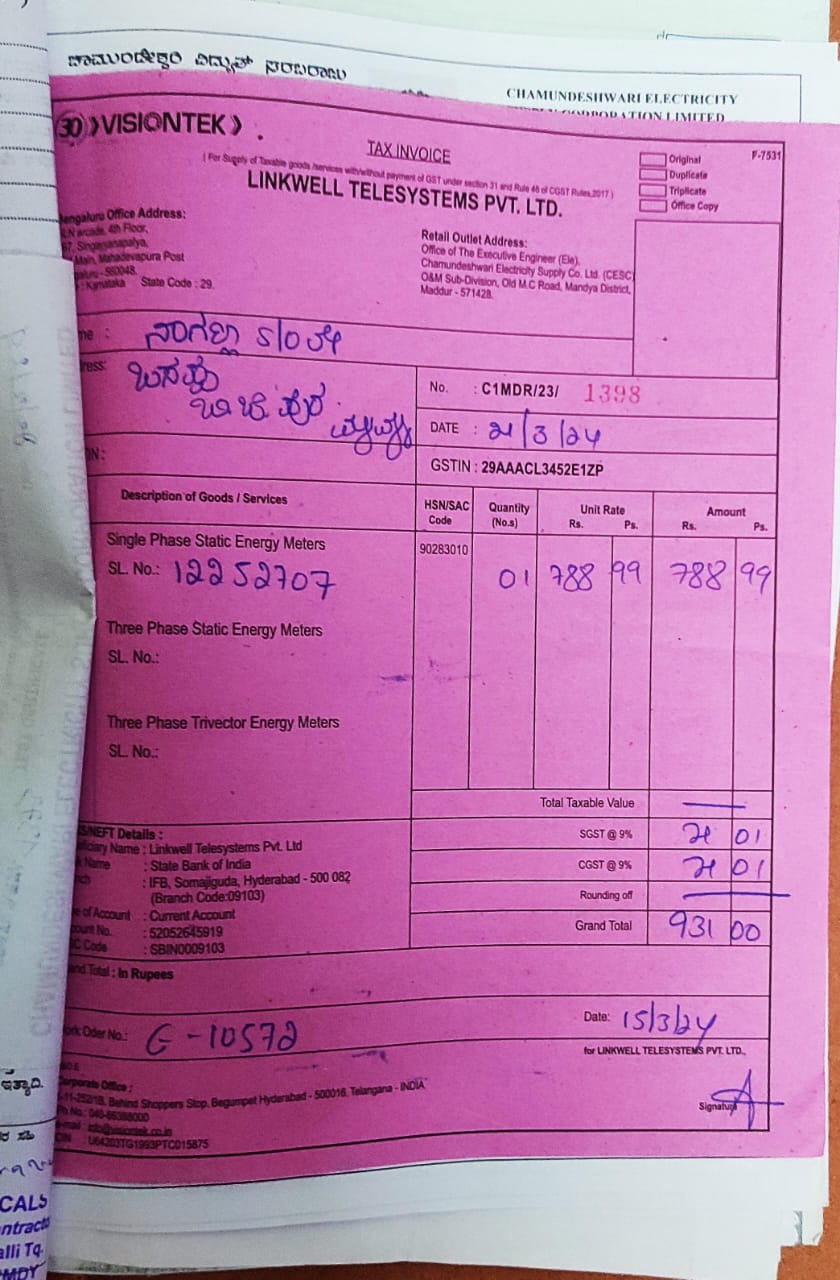 ಚಾಮುಂಡೇಶ್ವರಿ ವಿದ್ಯುತ್ ಸರಬರಾಜು
CHAMUNDESHWARI ELECTRICITY
CORPORATION LIMITED
30 VISIONTEK
TAX INVOICE
( For Supply of Taxable goods /services with/without payment of GST under section 31 and Rule 46 of CGST Rules,2017 )
LINKWELL TELESYSTEMS PVT. LTD.
Original
Duplicate
Triplicate
Office Copy
F-7531
engaluru Office Address:
arcade, 4th Floor,
Singayanapalya,
Main, Mahadevapura Post
galuru - 560048.
: Karnataka State Code : 29.
Retail Outlet Address:
Office of The Executive Engineer (Ele),
Chamundeshwari Electricity Supply Co. Ltd. (CESC)
O&M Sub-Division, Old M.C Road, Mandya District,
Maddur - 571428.
me : S/O
ress:
No. : C1MDR/23/ 1398
DATE : 21/3/24
GSTIN : 29AAACL3452E1ZP
Description of Goods / Services
HSN/SAC Code
Quantity (No.s)
Unit Rate
Rs. Ps.
Amount
Rs. Ps.
Single Phase Static Energy Meters 90283010
SL. No.: 12252707 01 788 99 788 99
Three Phase Static Energy Meters
SL. No.:
Three Phase Trivector Energy Meters
SL. No.:
Total Taxable Value
SGST @ 9% 71 01
CGST @ 9% 71 01
Rounding off
Grand Total 931 00
S/NEFT Details :
ficiary Name : Linkwell Telesystems Pvt. Ltd
k Name : State Bank of India
nch : IFB, Somajiguda, Hyderabad - 500 082
(Branch Code:09103)
e of Account : Current Account
ount No. : 52052645919
C Code : SBIN0009103
and Total : In Rupees
ork Oder No.: G-10572
Date: 15/3/24
for LINKWELL TELESYSTEMS PVT. LTD.,
Signature
Corporate Office :
-11-252/1B, Behind Shoppers Stop, Begumpet Hyderabad - 500016. Telangana - INDIA
Ph No.: 040-66388000
e-mail : info@visiontek.co.in
CIN : U64203TG1993PTC015875
ಇತ್ಯಾದಿ.
CALS
ntracto
alli Tq.
MDY